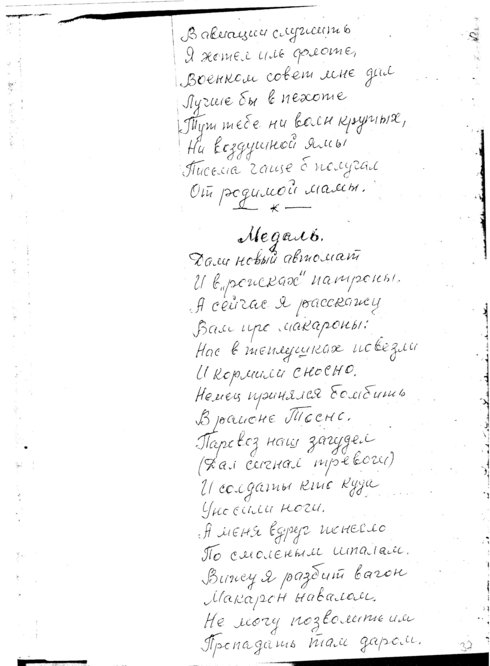 В авиации служить
Я хотел иль флоте,
Военком совет мне дал
Лучше бы в пехоте
Тут тебе ни волн крутых,
Ни воздушной ямы
Письма чаще б получал
От родимой мамы.
— * —
Медаль.
Дали новый автомат
И в „рожках" патроны.
А сейчас я расскажу
Вам про макароны:
Нас в теплушках повезли
И кормили сносно.
Немец принялся бомбить
В районе Тосно.
Паровоз наш загудел
(Дал сигнал тревоги)
И солдаты кто куда
Уносили ноги.
А меня вдруг понесло
По смоленым шпалам.
Вижу я разбит вагон
Макарон навалом.
Не могу позволить им
Пропадать там даром.
32